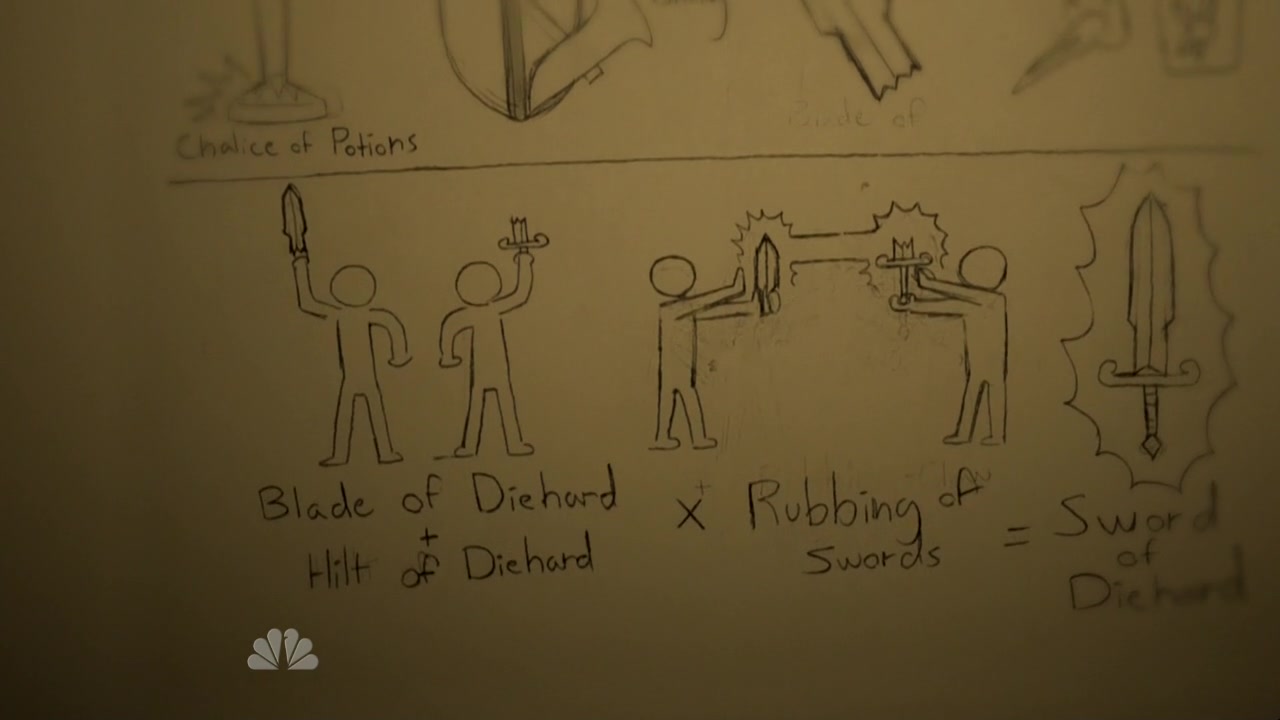 Chalice of Potions
Blade of
Blade of Diehard
+
Hilt of Diehard
x
Rubbing of
swords
=
Sword
of
Diehard